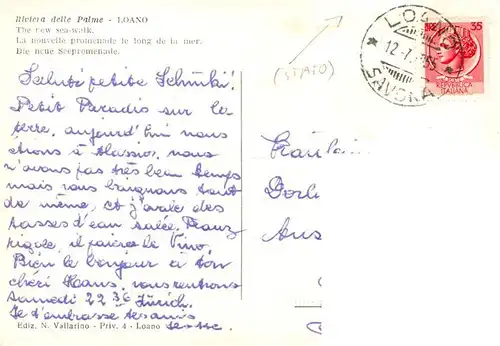 Riviera delle Palme - LOANO
The new sea-walk.
La nouvelle promenade le long de la mer.
Die neue Seepromenade.
LOANO
12.7.
SAVONA
LIRE 35
REPVBBLICA
ITALIANA
(STATO)
Saluti petite Schnucki!
Petit Paradis sur la
terre, aujourd'hui nous
étions à Alassio, nous
n'avons pas très beau temps
mais nous baignons tout
de même, et j'avale des
tasses d'eau salée. Franz
rigole, il préfère le Vino.
Bien le bonjour à ton
chéri Hans, nous rentrons
Samedi 22 36 Zürich.
Je t'embrasse
Fräulein
Ediz. N. Vallarino - Priv. 4 - Loano